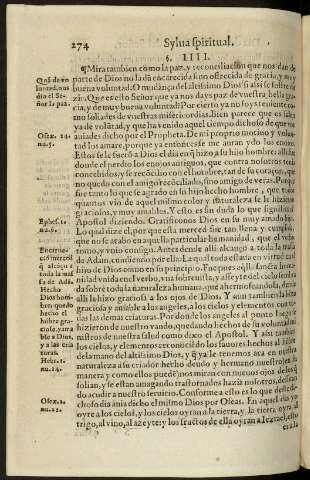 274
Sylua spiritual.
§. IIII.
¶ Mira tambien como la paz, y reconciliacion que nos dan de
parte de Dios no la dá encarecida sino ofrecida de gracia, y muy
buena voluntad. O mudança del altissimo Dios si assi se sufre de
zir. Que es esto Señor que ya nos days paz de vuestra bella gra
cia, y de muy buena voluntad? Por cierto ya no soys
soliades de vuestras misericordias. Bien parece que es
ya de volũtad, y que ha venido aquel tiempo dichoso de que vos
auiades dicho por el Propheta. De mi proprio motiuo y volun-
tad los amare, porque ya entonces se me auran ydo los enojos.
Esto se le secó a Dios el dia en q̃ hizo a su hijo hombre: alli fue
donde el perdio los enojos antiguos, que contra nosotros tenia
concebidos, y se recõcilio con el hombre, tan de su coraçon, que
no quedo con el amigo recõciliado, sino amigo de veras. Porque
fue tanto lo que se agradó en su hijo hecho hombre, que
quantos vio de aquel mismo color y naturaleza se le hizieron
graciosos, y muy amables. Y esto es sin duda lo que significa el
Apostol diziendo. Gratificonos Dios en su muy amado hijo.
Lo qual dize el, por que esta merced fue tan llena y cumplida,
que no se atajo en aquella particular humanidad, que el verbo
tomo, y vnio consigo. Antes dende alli alcançó a toda la masa
de Adam, cundiendo por ella: La qual toda estaua en virtud en el
hijo de Dios como en su principio. Pues
nidad vnida en el verbo,
da sobre toda la naturaleza humana, que a hermoseandola, dende
alli la hizo graciosa a los ojos de Dios. Y aun tambien la hizo
graciosa y amable a los angeles, a los cielos y elementos con to-
das las demas criaturas. Por donde los angeles al punto luego se
hizieron de nuestro vando, quedando hechos de su voluntad mi
nistros de nuestra salud como dixo el Apostol. Y assi tambien
los cielos, y elementos reconociẽdo los fauores hechos al hõbre
de la mano del altissimo Dios, y q̃ ya le tenemos acá en nuestra
naturaleza assi criador hecho deudo y hermano nuestro,
manera y como ellos puedẽ nos miran con nueuos ojos de los q̃
solian, y se estan amagando trastornados hazia nosotros, dessean
do acudir a nuestro seruicio. Conforme a esto es lo que deste di-
choso dia auia dicho el mismo Dios por Oseas. En aquel dia yo
oyre a los cielos, y los cielos oyran a la tierra, y la tierra oyra al
trigo, al vino, al azeyte: y los frutos de ella oyran a Israel, esto
era la
Oseæ. 14.
nu. 5.
Ephes. 1.
nu. 6.
toda la ma
sa de Adã.
Hecho
Dios hom-
bre quedo
hecho el
hõbre gra-
cioso, y am
ble a Dios,
y a las cria
turas.
Hebr. 1.
nu. 14.
Oseæ. 2.
nu. 22.